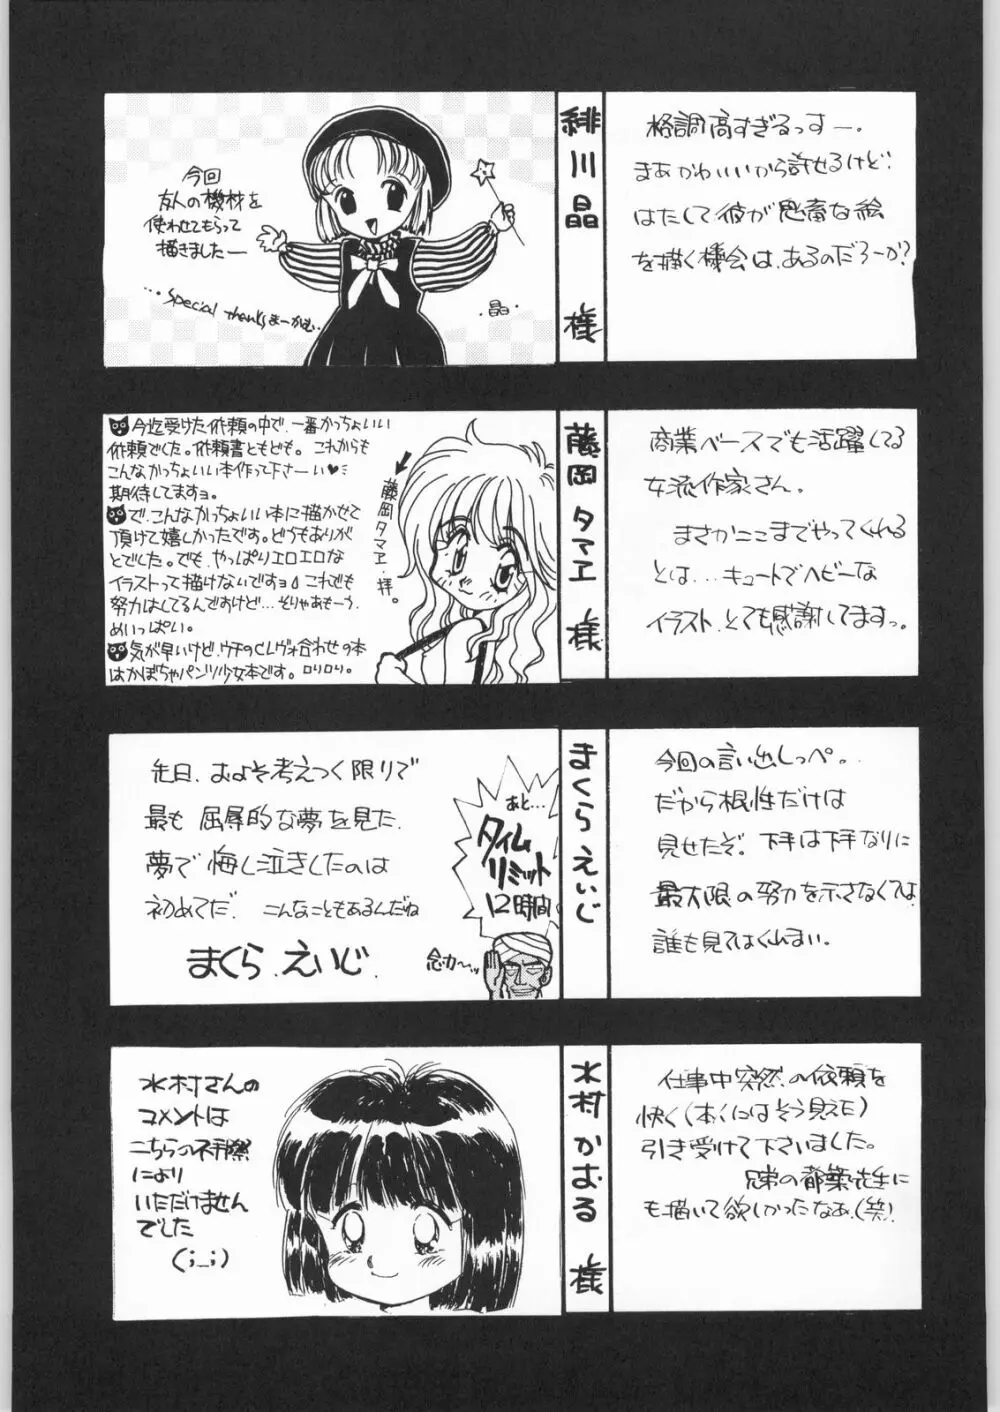 今回
友人の機材を
使わせてもらって
描きましたー
...special thanksまーかむ.
.晶.
緋川晶 様
格調高すぎるっすー。
まあかわいいから許せるけど、
はたして彼が鬼畜な絵
を描く機会は、あるのだろーか?
今迄受けた依頼の中で、一番かっちょいい
依頼でした。依頼書ともども。これからも
こんなかっちょいい本作って下さーい♥
期待してますョ。
で、こんなかっちょいい本に描かせて
頂けて嬉しかったです。どうもありが
とでした。でも、やっぱりエロエロな
イラストって描けないですョ これでも
努力はしてるんですけど…そりゃあもーう、
めいっぱい。
気が早いけど、ウチのCレヴォ合わせの本
はかぼちゃパンツ少女本です。ロリロリ。
藤岡タマエ・拝。
藤岡タマヱ 様
商業ベースでも活躍してる
女流作家さん。
まさかここまでやってくれる
とは...キュートでヘビーな
イラスト、とても感謝してますっ。
先日、およそ考えつく限りで
最も 屈辱的な夢を見た.
夢で 悔し泣きしたのは
初めてだ. こんなこともあるんだね
まくら えいじ.
あと...
タイム
リミット
12時間
念力〜ッ
まくらえいじ
今回の言い出しっぺ。
だから根性だけは
見せたぞ。下手は下手なりに
最大限の努力を示さなくては、
誰も見てはくれまい。
水村さんの
コメントは
こちらの不手際
により
いただけません
でした
(;_;)
水村かおる 様
仕事中突然の依頼を
快く(本人にはそう見えた)
引き受けて下さいました。
兄弟の都築先生に
も描いて欲しかったなぁ.(笑)